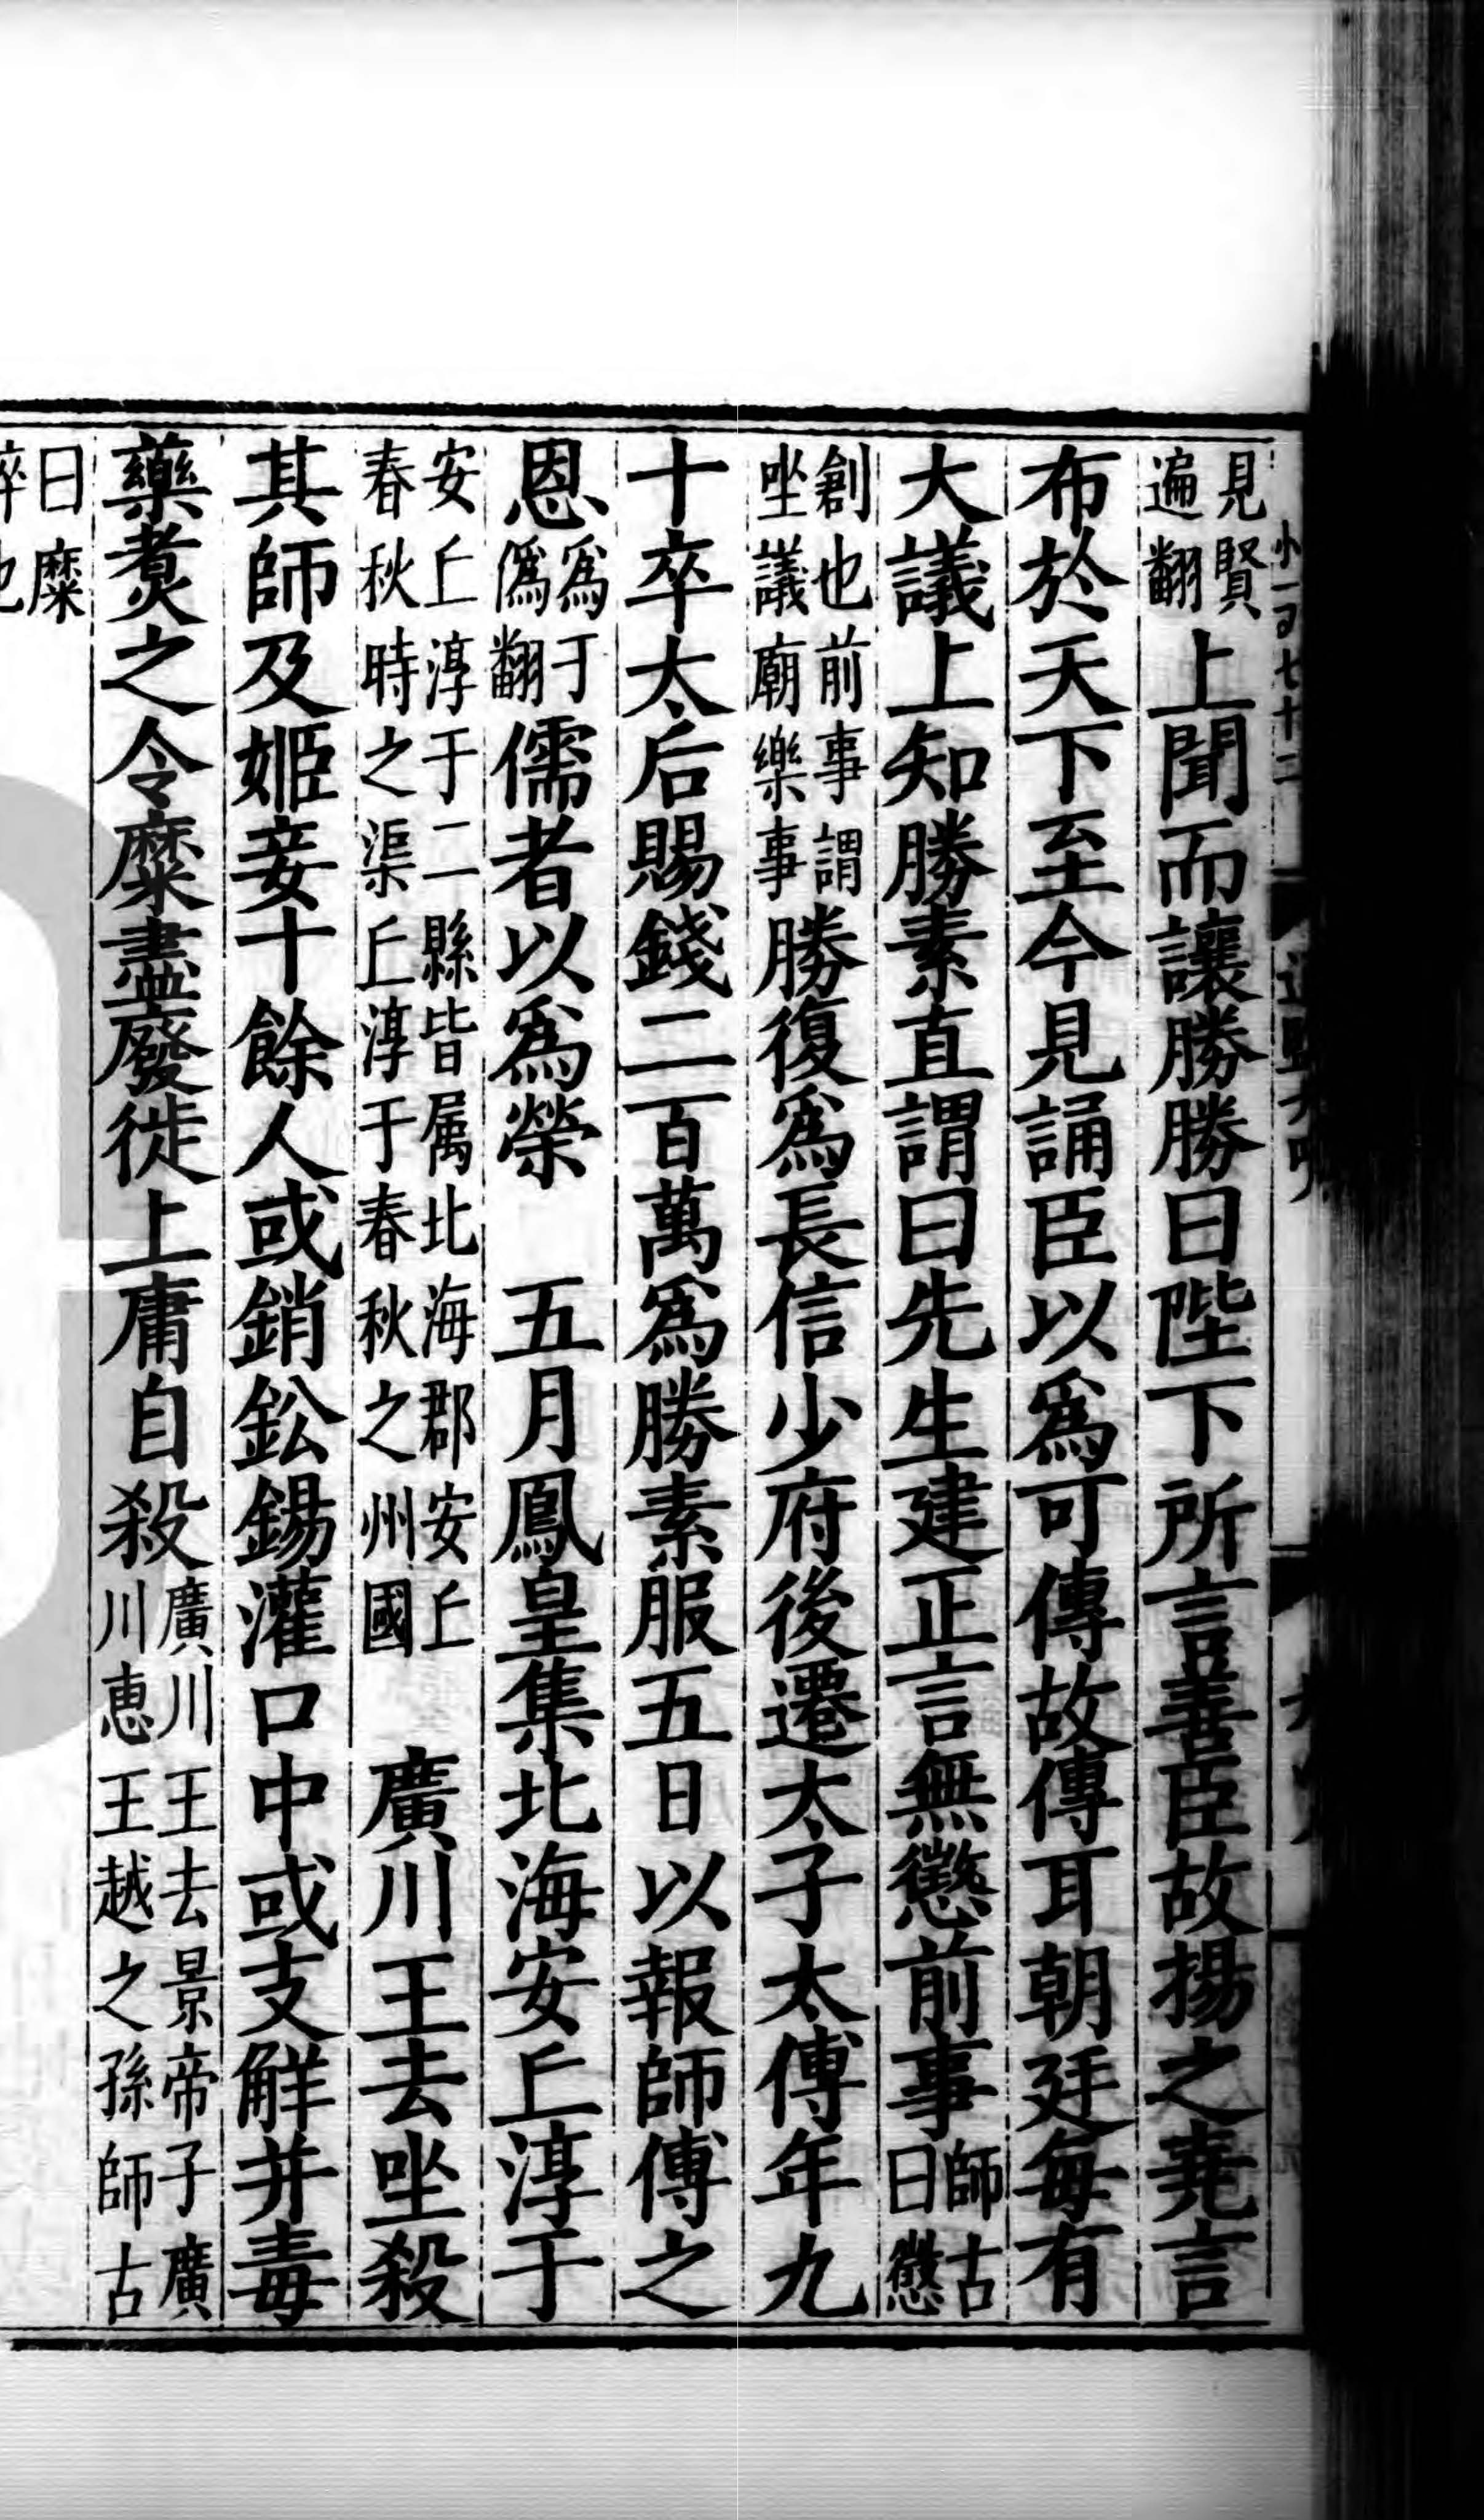 見賢遍翻上聞而讓勝勝曰陛下所言善臣故揚之堯言
布於天下至今見誦臣以爲可傳故傳耳朝廷每有
大議上知勝素直謂曰先生建正言無懲前事師古曰懲
創也前事謂坐議廟樂事勝復爲長信少府後遷太子太傅年九
十卒太后賜錢二百萬爲勝素服五日以報師傅之
恩爲于僞翻儒者以爲榮 五月鳳皇集北海安丘淳于
安丘淳于二縣皆属北海郡安丘春秋時之渠丘淳于春秋之州國 廣川王去坐殺
其師及姬妾十餘人或銷鈆錫灌口中或支解并毒
藥煑之令糜盡廢徙上庸自殺廣川王去景帝子廣川恵王越之孫師古
曰糜